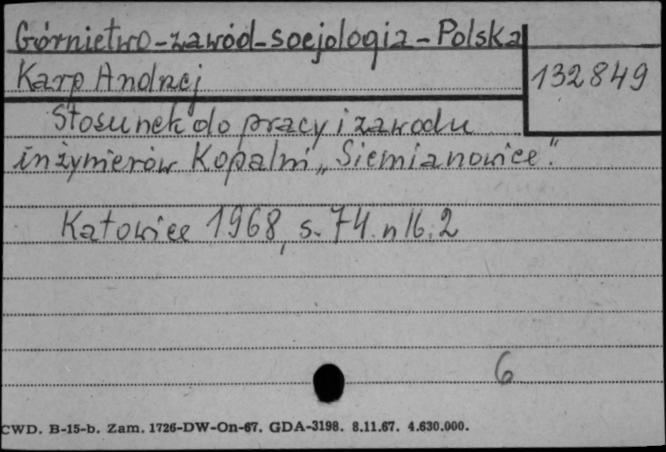 Górnictwo-zawód-socjologia-Polska
Karp Andrzej
132849
Stosunek do pracy i zawodu
inżynierów Kopalni „Siemianowice".
Katowice 1968, s. 74. nlb. 2
6
CWD. B-15-b. Zam. 1726-DW-On-67. GDA-3198. 8.11.67. 4.630.000.